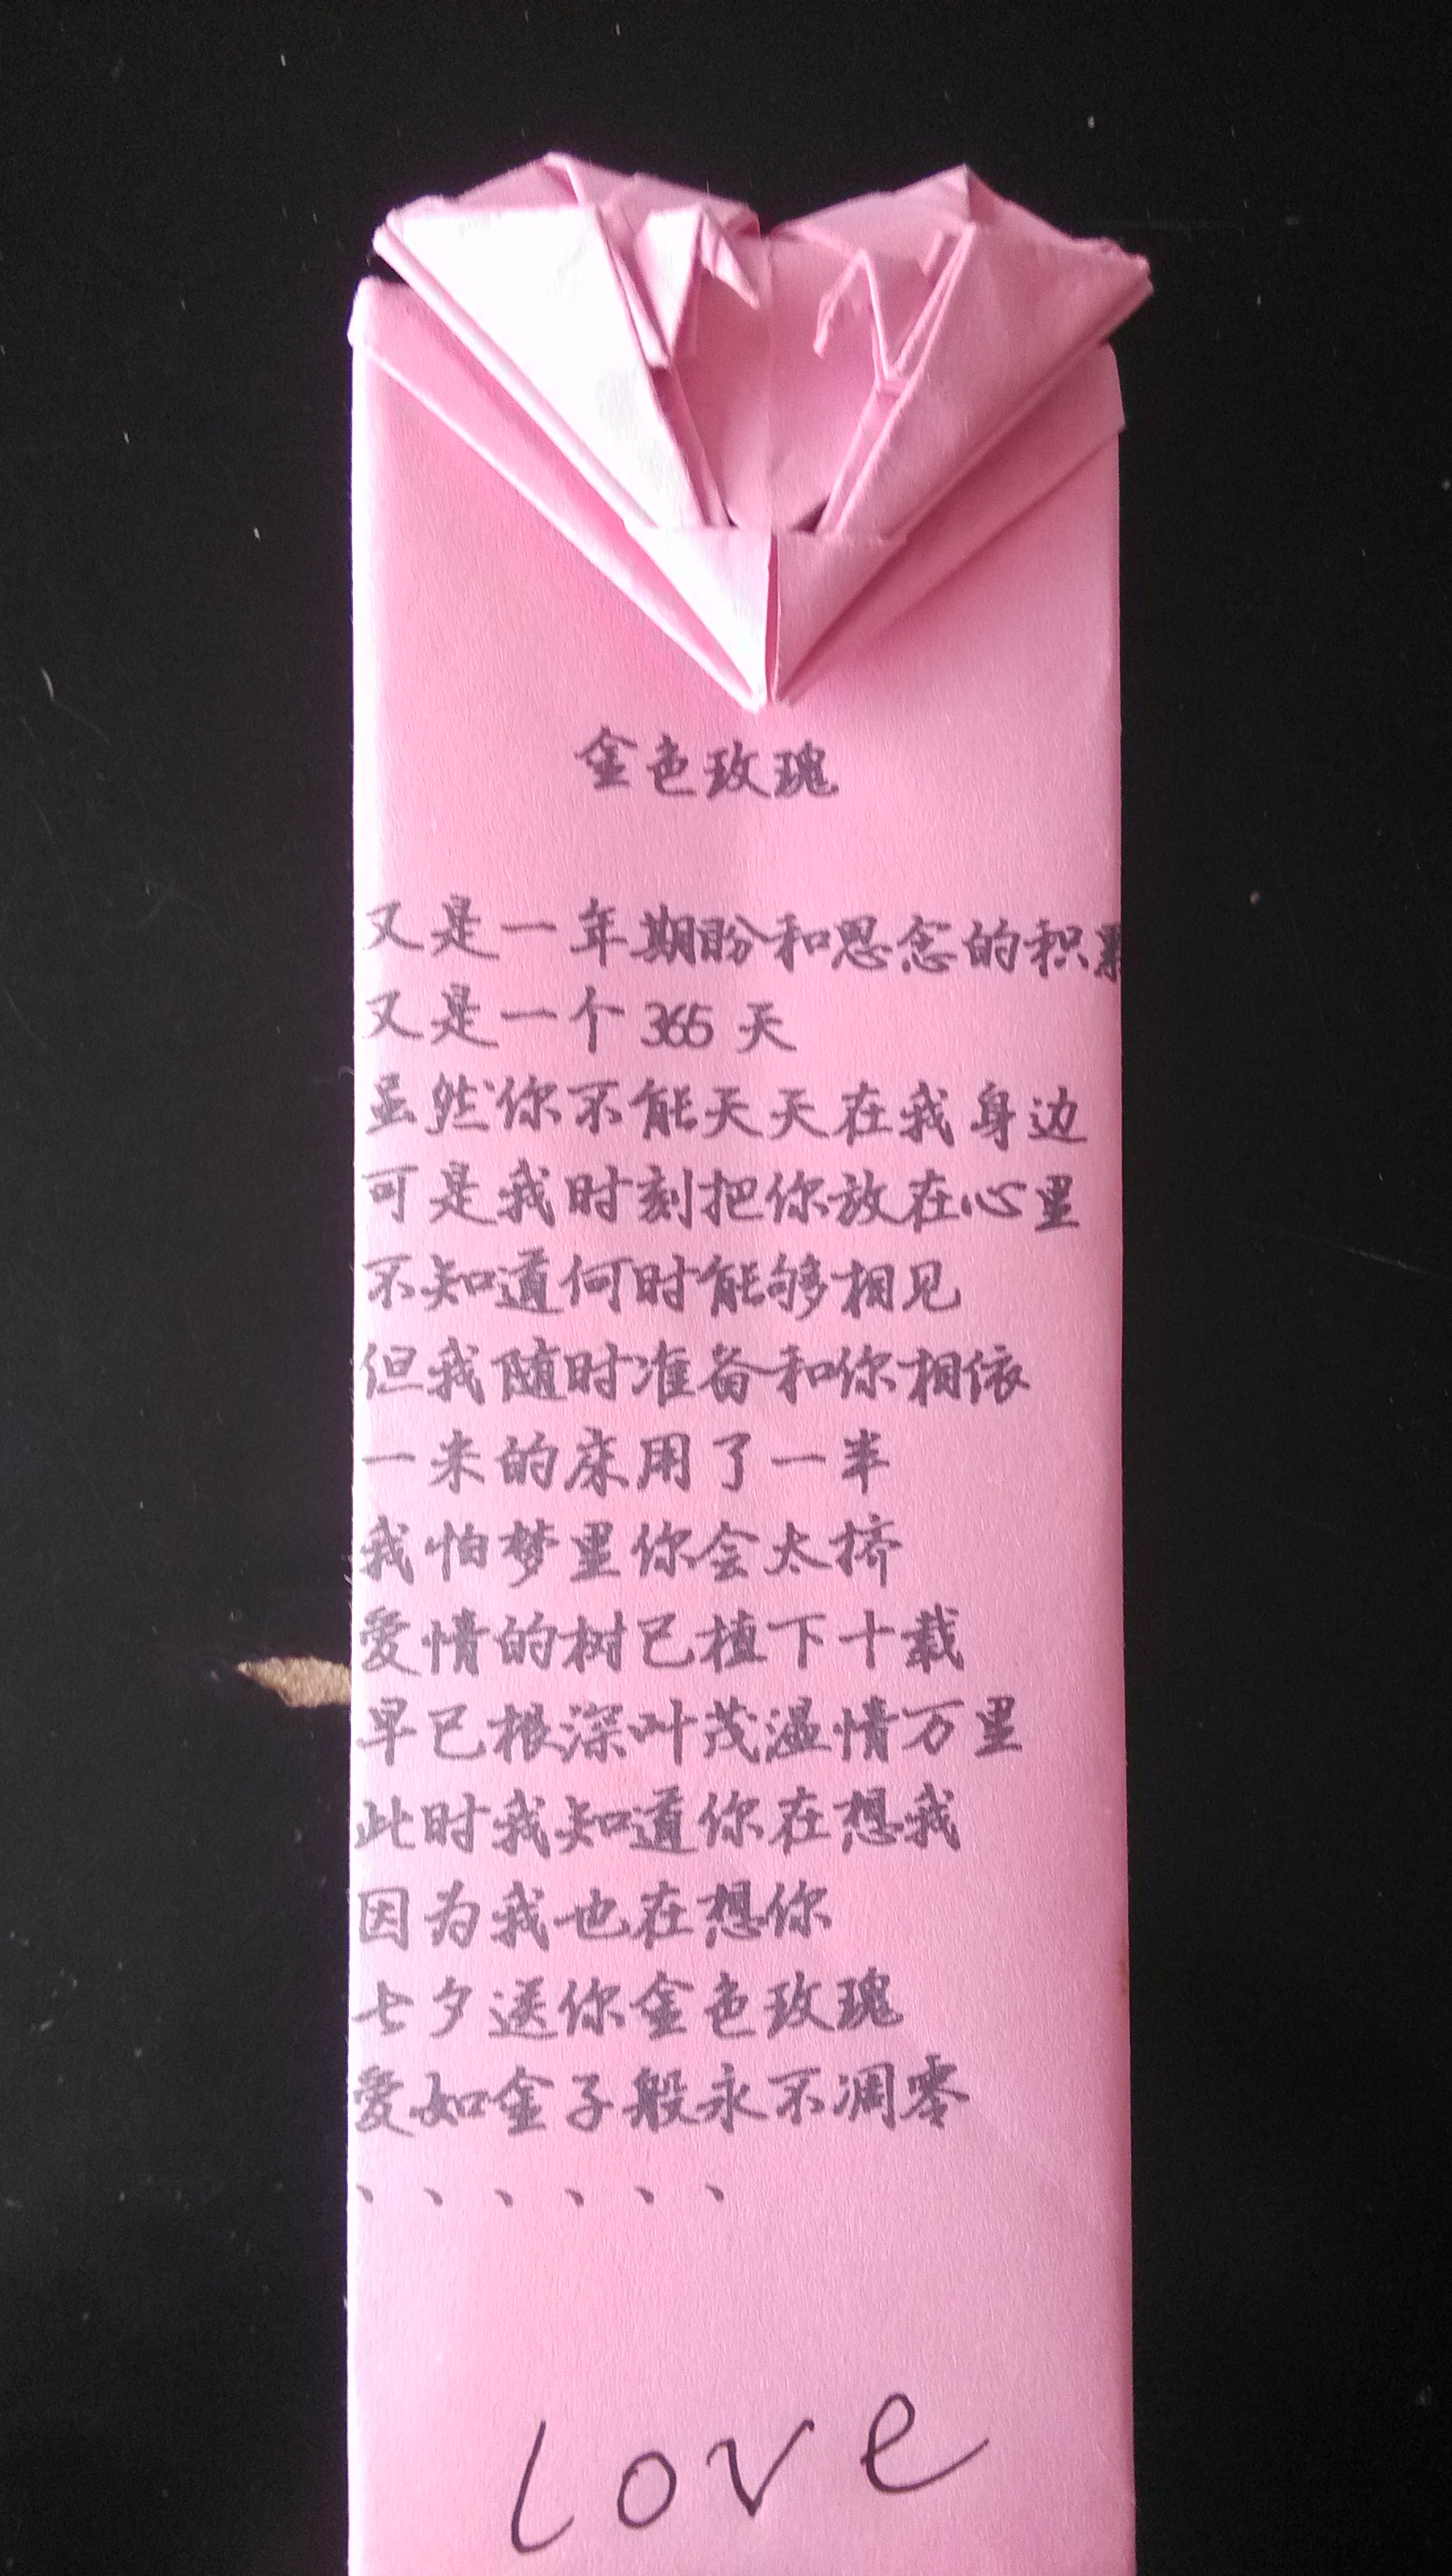 金色玫瑰
又是一年期盼和思念的积累
又是一个365天
虽然你不能天天在我身边
可是我时刻把你放在心里
不知道何时能够相见
但我随时准备和你相依
一米的床用了一半
我怕梦里你会太挤
爱情的树已植下十载
早已根深叶茂温情万里
此时我知道你在想我
因为我也在想你
七夕送你金色玫瑰
爱如金子般永不凋零
、、、、、、
Love